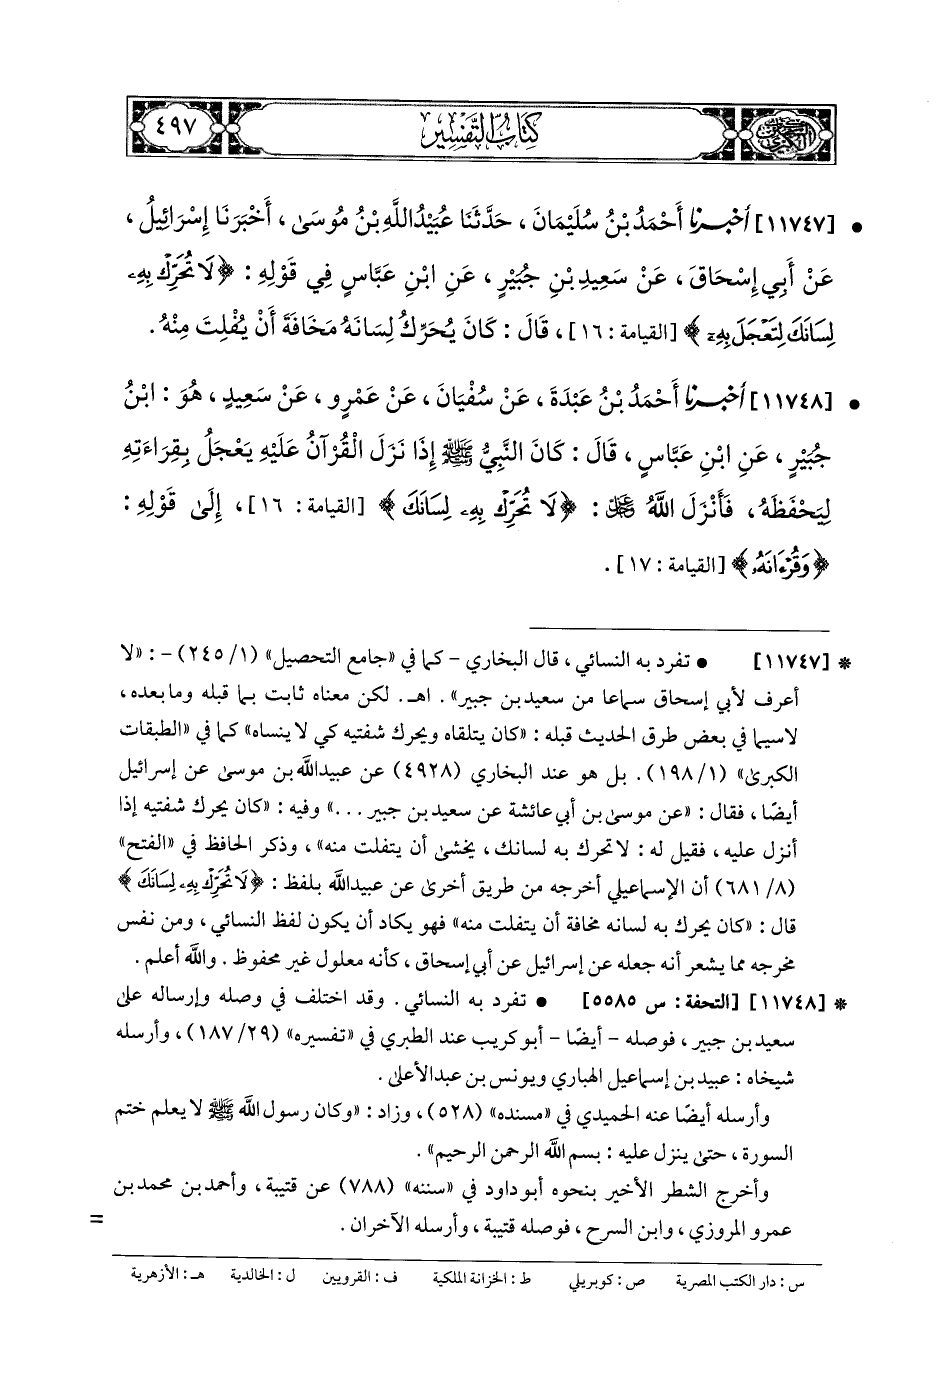 كتاب التفسير
٤٩٧
• [١١٧٤٧] أخبرنا أَحْمَدُ بْنُ سُلَيْمَانَ ، حَدَّثَنَا عُبَيْدُاللَّهِ بْنُ مُوسَىٰ ، أَخْبَرَنَا إِسْرَائِيلُ ،
عَنْ أَبِي إِسْحَاقَ ، عَنْ سَعِيدِ بْنِ جُبَيْرٍ ، عَنِ ابْنِ عَبَّاسٍ فِي قَوْلِهِ : ﴿لَا تُحَرِّكْ بِهِۦ
لِسَانَكَ لِتَعْجَلَ بِهِۦٓ﴾ [القيامة : ١٦] ، قَالَ : كَانَ يُحَرِّكُ لِسَانَهُ مَخَافَةَ أَنْ يُفْلِتَ مِنْهُ .
• [١١٧٤٨] أخبرنا أَحْمَدُ بْنُ عَبْدَةَ ، عَنْ سُفْيَانَ ، عَنْ عَمْرٍو ، عَنْ سَعِيدٍ ، هُوَ : ابْنُ
جُبَيْرٍ ، عَنِ ابْنِ عَبَّاسٍ ، قَالَ : كَانَ النَّبِيُّ ﷺ إِذَا نَزَلَ الْقُرْآنُ عَلَيْهِ يَعْجَلُ بِقِرَاءَتِهِ
لِيَحْفَظَهُ ، فَأَنْزَلَ اللَّهُ ﷻ : ﴿لَا تُحَرِّكْ بِهِۦ لِسَانَكَ﴾ [القيامة : ١٦] ، إِلَىٰ قَوْلِهِ :
﴿وَقُرْءَانَهُۥ﴾ [القيامة : ١٧] .
* [١١٧٤٧] • تفرد به النسائي ، قال البخاري - كما في «جامع التحصيل» (١/ ٢٤٥) - : «لا
أعرف لأبي إسحاق سماعا من سعيد بن جبير» . اهـ. لكن معناه ثابت بما قبله وما بعده ،
لاسيما في بعض طرق الحديث قبله : «كان يتلقاه ويحرك شفتيه كي لا ينساه» كما في «الطبقات
الكبرى» (١/ ١٩٨) . بل هو عند البخاري (٤٩٢٨) عن عبيدالله بن موسىٰ عن إسرائيل
أيضًا ، فقال : «عن موسىٰ بن أبي عائشة عن سعيد بن جبير . . .» وفيه : «كان يحرك شفتيه إذا
أنزل عليه ، فقيل له : لا تحرك به لسانك ، يخشىٰ أن يتفلت منه» ، وذكر الحافظ في «الفتح»
(٨/ ٦٨١) أن الإسماعيلي أخرجه من طريق أخرىٰ عن عبيدالله بلفظ : ﴿لَا تُحَرِّكْ بِهِۦ لِسَانَكَ﴾
قال : «كان يحرك به لسانه مخافة أن يتفلت منه» فهو يكاد أن يكون لفظ النسائي ، ومن نفس
مخرجه مما يشعر أنه جعله عن إسرائيل عن أبي إسحاق ، كأنه معلول غير محفوظ . والله أعلم .
* [١١٧٤٨] [التحفة : س ٥٥٨٥] • تفرد به النسائي . وقد اختلف في وصله وإرساله علىٰ
سعيد بن جبير ، فوصله - أيضًا - أبو كريب عند الطبري في «تفسيره» (٢٩/ ١٨٧) ، وأرسله
شيخاه : عبيد بن إسماعيل الهباري ويونس بن عبدالأعلىٰ .
وأرسله أيضًا عنه الحميدي في «مسنده» (٥٢٨) ، وزاد : «وكان رسول الله ﷺ لا يعلم ختم
السورة ، حتىٰ ينزل عليه : بسم الله الرحمن الرحيم» .
وأخرج الشطر الأخير بنحوه أبو داود في «سننه» (٧٨٨) عن قتيبة ، وأحمد بن محمد بن
عمرو المروزي ، وابن السرح ، فوصله قتيبة ، وأرسله الآخران . =
س : دار الكتب المصرية ص : كوبريلي ط : الخزانة الملكية ف : القرويين ل : الخالدية هـ : الأزهرية